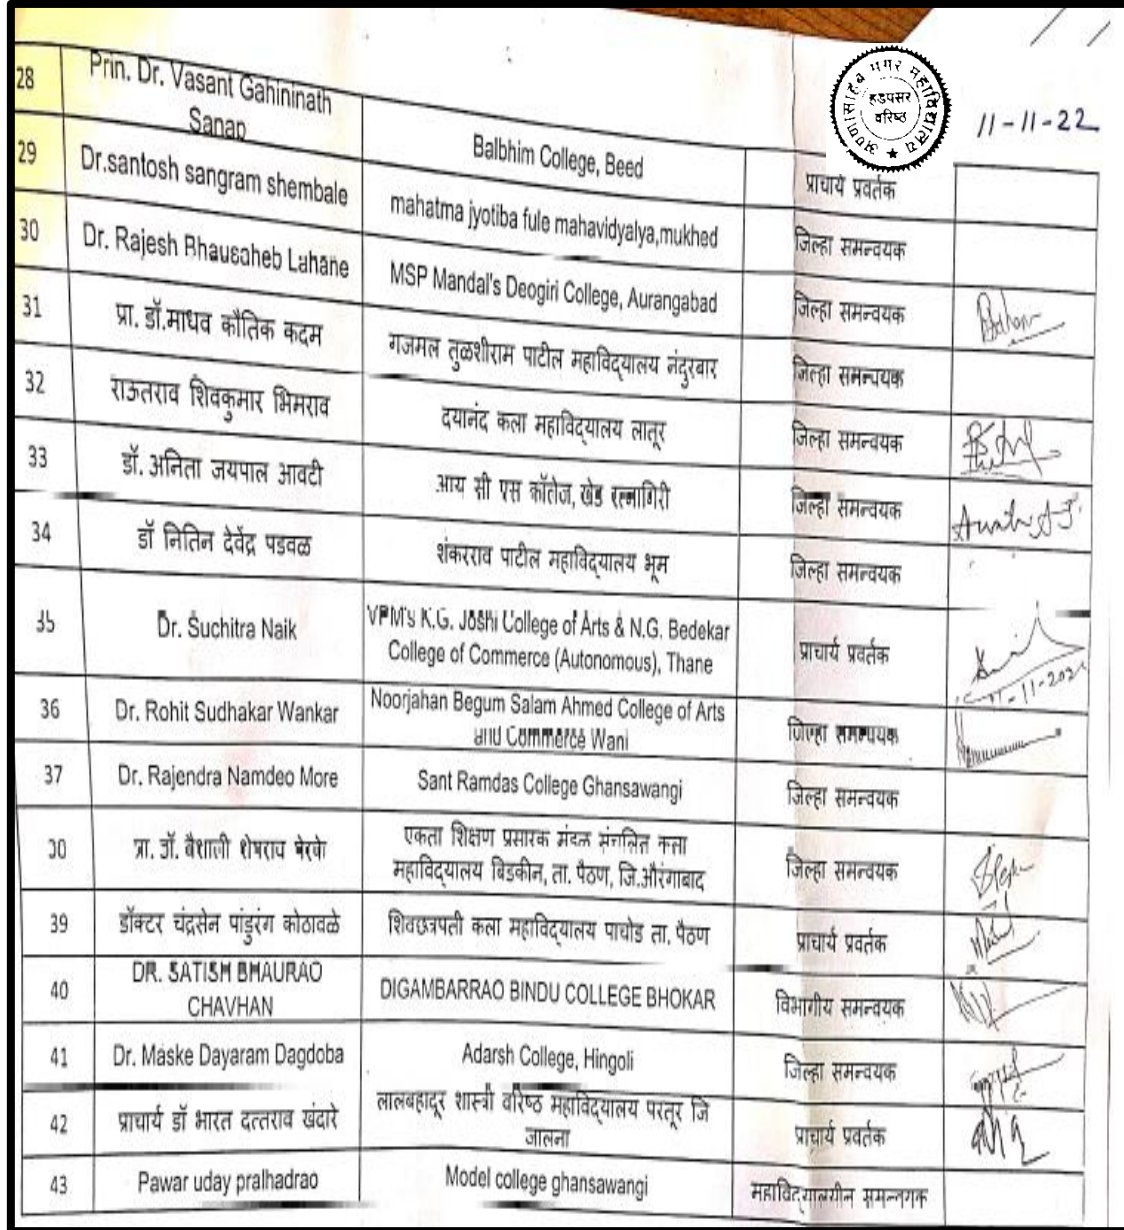 अण्णासाहेब मगर महाविद्यालय
हडपसर
वरिष्ठ
11-11-22
28 Prin. Dr. Vasant Gahininath
Sanap Balbhim College, Beed प्राचार्य प्रवर्तक
29 Dr.santosh sangram shembale mahatma jyotiba fule mahavidyalya,mukhed जिल्हा समन्वयक
30 Dr. Rajesh Bhausaheb Lahane MSP Mandal's Deogiri College, Aurangabad जिल्हा समन्वयक
31 प्रा. डॉ.माधव कौतिक कदम गजमल तुळशीराम पाटील महाविद्यालय नंदुरबार जिल्हा समन्वयक
32 राऊतराव शिवकुमार भिमराव दयानंद कला महाविद्यालय लातूर जिल्हा समन्वयक
33 डॉ. अनिता जयपाल आवटी आय सी एस कॉलेज, खेड रत्नागिरी जिल्हा समन्वयक
34 डॉ नितिन देवेंद्र पडवळ शंकरराव पाटील महाविद्यालय भूम जिल्हा समन्वयक
35 Dr. Suchitra Naik VPM's K.G. Joshi College of Arts & N.G. Bedekar
College of Commerce (Autonomous), Thane प्राचार्य प्रवर्तक
36 Dr. Rohit Sudhakar Wankar Noorjahan Begum Salam Ahmed College of Arts
and Commerce Wani जिल्हा समन्वयक
37 Dr. Rajendra Namdeo More Sant Ramdas College Ghansawangi जिल्हा समन्वयक
प्रा. डॉ. वैशाली शेषराव एकता शिक्षण प्रसारक मंडळ संचलित कला
महाविद्यालय बिडकीन, ता. पैठण, जि.औरंगाबाद जिल्हा समन्वयक
39 डॉक्टर चंद्रसेन पांडुरंग कोठावळे शिवछत्रपती कला महाविद्यालय पाचोड ता. पैठण प्राचार्य प्रवर्तक
40 DR. SATISH BHAURAO
CHAVHAN DIGAMBARRAO BINDU COLLEGE BHOKAR विभागीय समन्वयक
41 Dr. Maske Dayaram Dagdoba Adarsh College, Hingoli जिल्हा समन्वयक
42 प्राचार्य डॉ भारत दत्तराव खंदारे लालबहादूर शास्त्री वरिष्ठ महाविद्यालय परतूर जि
जालना प्राचार्य प्रवर्तक
43 Pawar uday pralhadrao Model college ghansawangi महाविद्यालयीन समन्वयक